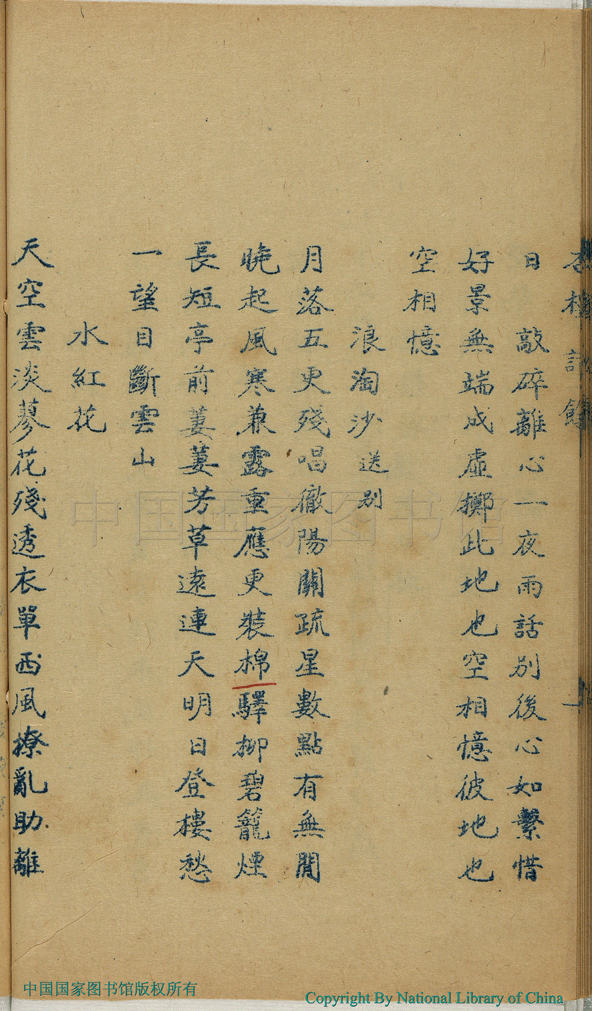 日　敲碎離心一夜雨話別後心如繫惜
好景無端成虛擲此地也空相憶彼地也
空相憶
浪淘沙 送别
月落五更殘唱徹陽關疏星數點有無閒
曉起風寒兼露重應更裝棉驛柳碧籠煙
長短亭前萋萋芳草遠連天明日登樓愁
一望目斷雲山
水紅花
天空雲淡蓼花殘透衣單西風撩亂助離
中国国家图书馆
中国国家图书馆版权所有
Copyright By National Library of China